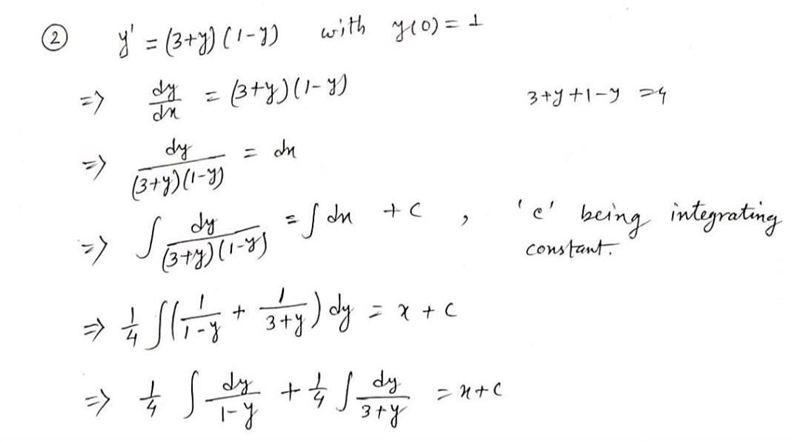 ② y' = (3+y)(1-y) with y(0) = 1
=> dy/dx = (3+y)(1-y) 3+y+1-y = 4
=> dy/((3+y)(1-y)) = dx
=> ∫ dy/((3+y)(1-y)) = ∫ dx + c , 'c' being integrating constant.
=> 1/4 ∫(1/(1-y) + 1/(3+y)) dy = x + c
=> 1/4 ∫ dy/(1-y) + 1/4 ∫ dy/(3+y) = x+c